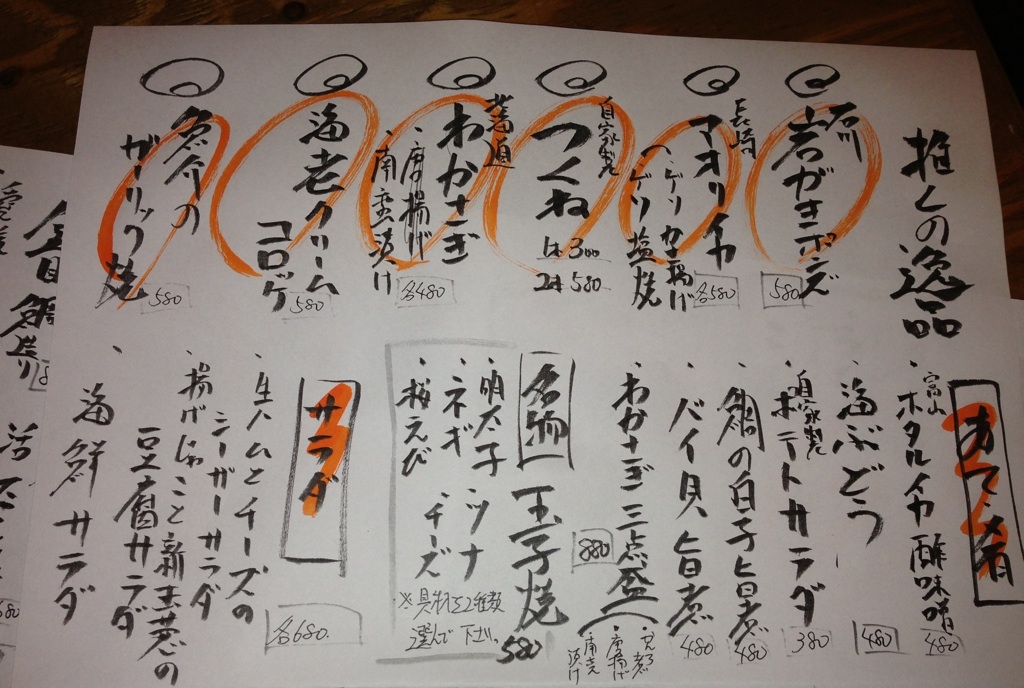 推しの逸品
石川
岩がきポン
580
長崎
マオリイカ
・ゲソカラ揚げ
・ゲソ塩焼
各580
自家製
つくね
1本 300
2本 580
北海道
わかさぎ
・唐揚げ
・南蛮漬け
各480
海老クリーム
コロッケ
580
魚介の
ガーリック焼
580
あて・肴
富山
ホタルイカ酢味噌
480
海ぶどう
480
・自家製
ポテトサラダ
380
・鯛の白子旨煮
480
・バイ貝旨煮
480
・わかさぎ三点盛
・唐揚げ
・南蛮漬け
880
名物
玉子焼
580
・明太子
・ネギ
・桜えび
ツナ
チーズ
※具材を2種類
選んで下さい。
サラダ
各680
・生ハムとチーズの
シーザーサラダ
・揚げじゃこと新玉葱の
豆腐サラダ
・海鮮サラダ